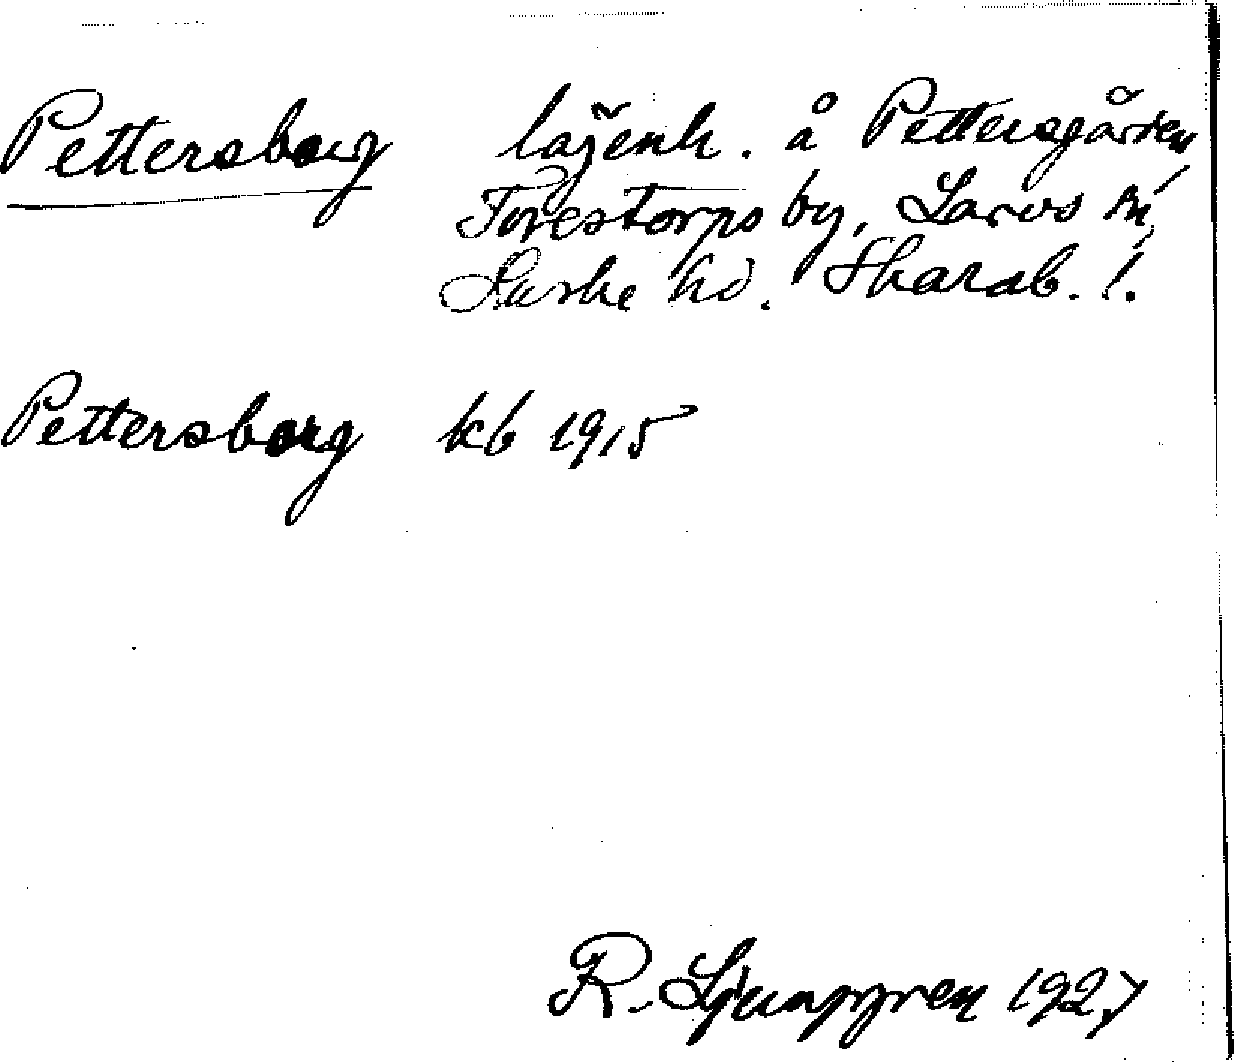 Pettersborg lägenh. å Pettersgården
Torestorps by, Larvs sn,
Laske hd. Skarab. l.
Pettersborg kb 1915
R. Ljunggren 1927